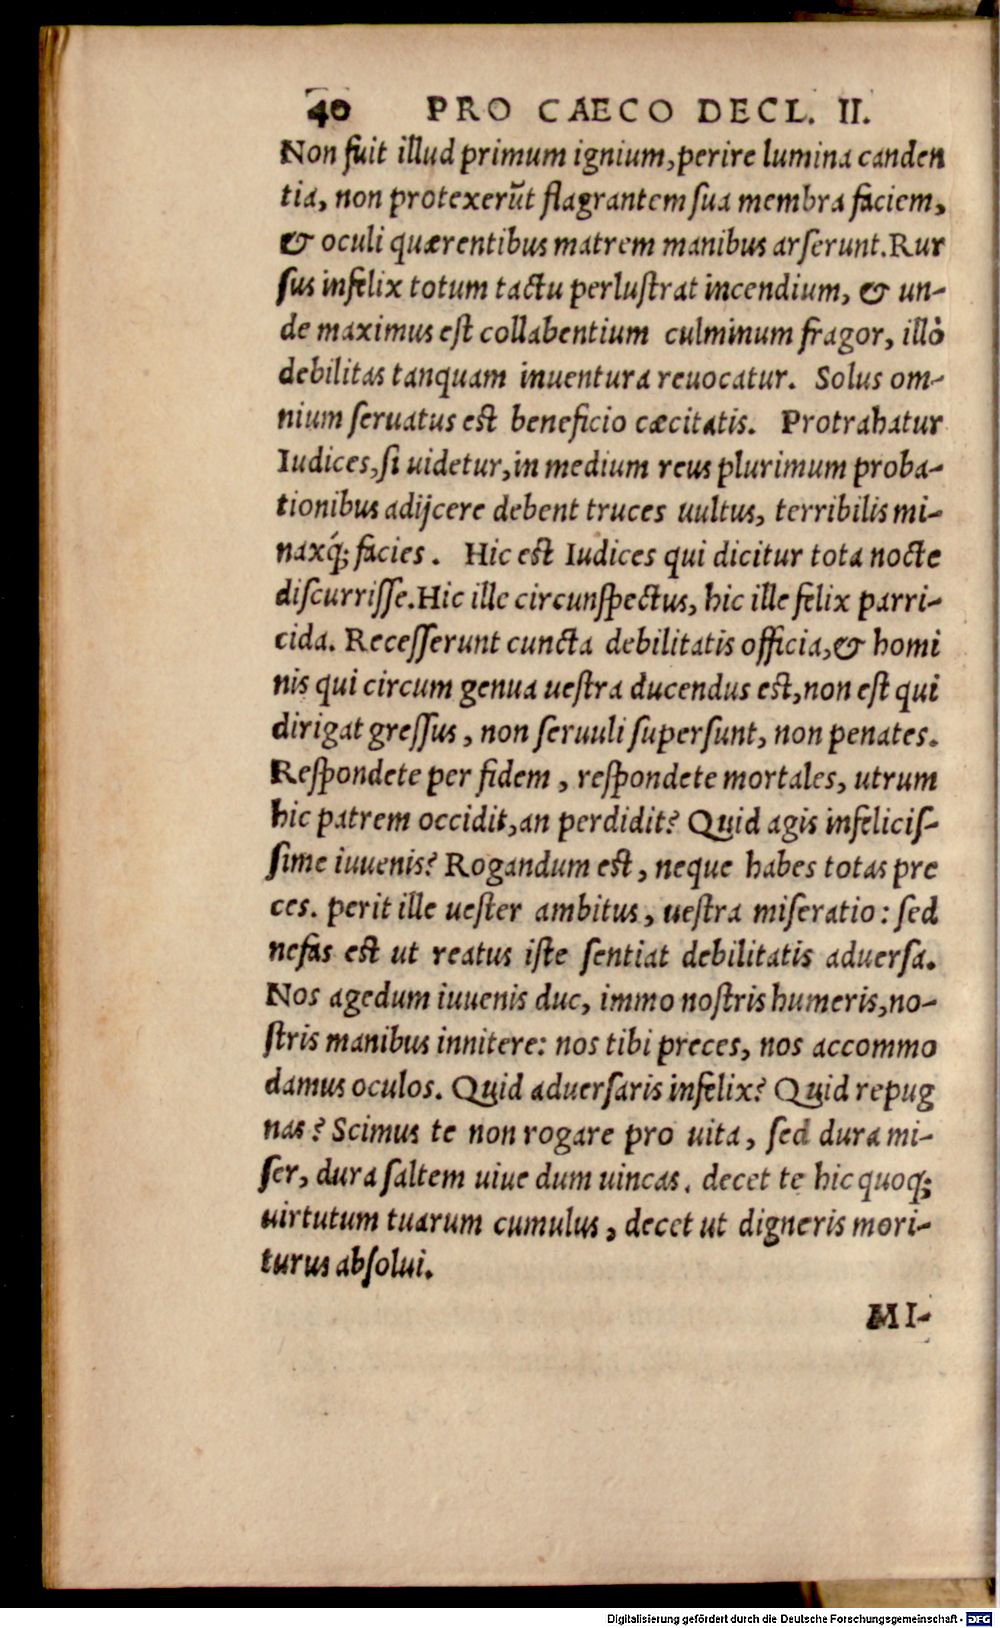 40 PRO CAECO DECL. II.
Non fuit illud primum ignium, perire lumina canden
tia, non protexerũt flagrantem ſua membra faciem,
& oculi quærentibus matrem manibus arſerunt. Rur
ſus infelix totum tactu perluſtrat incendium, & un-
de maximus eſt collabentium culminum fragor, illò
debilitas tanquam inuentura reuocatur. Solus om-
nium ſeruatus eſt beneficio cæcitatis. Protrahatur
Iudices, ſi uidetur, in medium reus plurimum proba-
tionibus adijcere debent truces uultus, terribilis mi-
naxq́; facies. Hic eſt Iudices qui dicitur tota nocte
diſcurriſſe. Hic ille circunſpectus, hic ille felix parri-
cida. Receſſerunt cuncta debilitatis officia, & homi
nis qui circum genua ueſtra ducendus eſt, non eſt qui
dirigat greſſus, non ſeruuli ſuperſunt, non penates.
Reſpondete per fidem, reſpondete mortales, utrum
hic patrem occidit, an perdidit? Quid agis infeliciſ-
ſime iuuenis? Rogandum eſt, neque habes totas pre
ces. perit ille ueſter ambitus, ueſtra miſeratio: ſed
nefas eſt ut reatus iſte ſentiat debilitatis aduerſa.
Nos agedum iuuenis duc, immo noſtris humeris, no-
ſtris manibus innitere: nos tibi preces, nos accommo
damus oculos. Quid aduerſaris infelix? Quid repug
nas? Scimus te non rogare pro uita, ſed dura mi-
ſer, dura ſaltem uiue dum uincas. decet te hic quoq;
uirtutum tuarum cumulus, decet ut digneris mori-
turus abſolui.
MI-
Digitalisierung gefördert durch die Deutsche Forschungsgemeinschaft - DFG